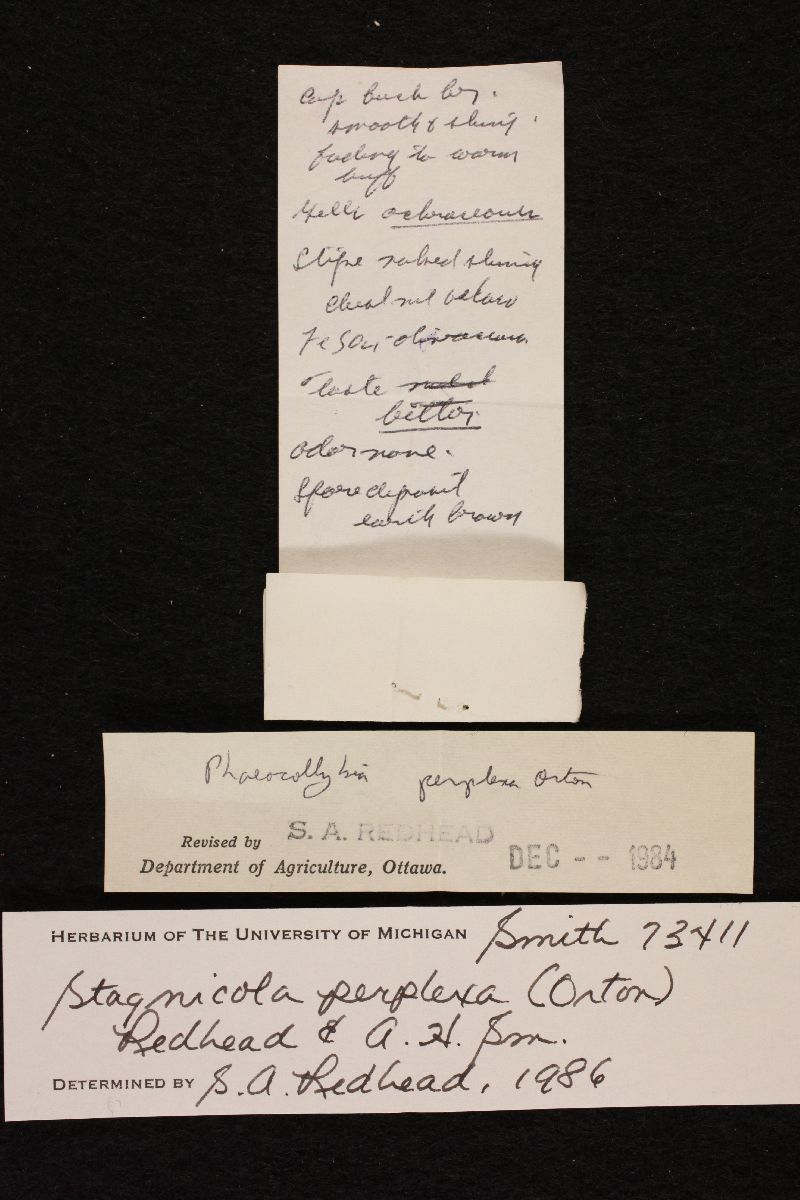 Cap buck by.
smooth & shiny.
fading to warm
buff
Gills ochraceous
Stipe naked shiny
Chestnut below
FeSO4-olivaceous
Taste
bitter.
odor none.
Spore deposit
earth brown
Phaeocollybia perplexa Orton
Revised by S. A. REDHEAD
Department of Agriculture, Ottawa. DEC -- 1984
HERBARIUM OF THE UNIVERSITY OF MICHIGAN Smith 73411
Stagnicola perplexa (Orton)
Redhead & A. H. Sm.
DETERMINED BY S. A. Redhead, 1986